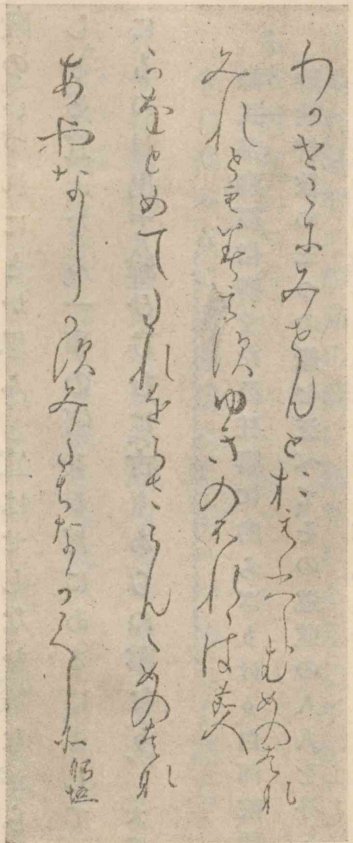 わかせこにみせんとおもひしむめのはな
それともみえすゆきのふれゝは赤人
かをとめてたれをらさらんゝめのはな
あやなしかすみたちなかくしそ躬恒